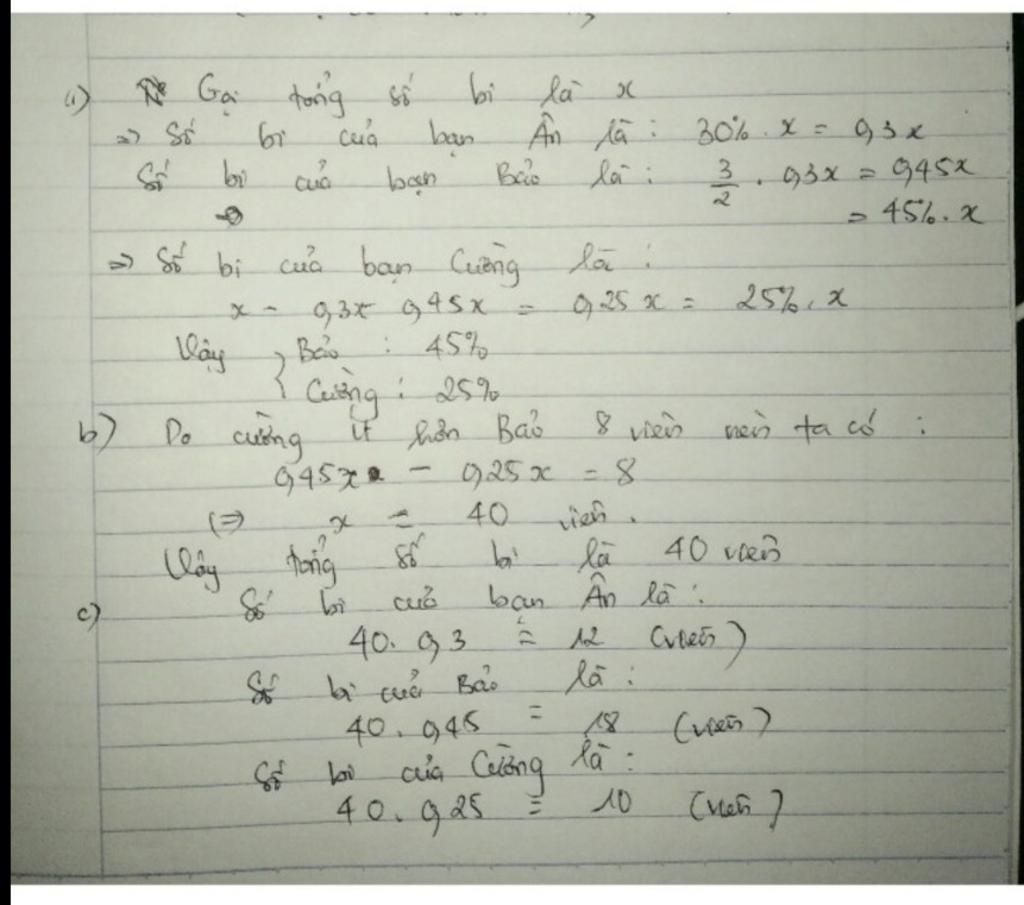 a) Gọi tổng số bi là x
=> Số bi của bạn Ân là: 30% . x = 0,3x
Số bi của bạn Bảo là: 3/2 . 0,3x = 0,45x
= 45%. x
=> Số bi của bạn Cường là:
x - 0,3x - 0,45x = 0,25x = 25%. x
Vậy { Bảo : 45%
Cường : 25%
b) Do cường ít hơn Bảo 8 viên nên ta có :
0,45x - 0,25x = 8
(=> x = 40 viên.
Vậy tổng số bi là 40 viên
c) Số bi của bạn Ân là:
40. 0,3 = 12 (viên)
Số bi của Bảo là:
40. 0,45 = 18 (viên)
Số bi của Cường là:
40. 0,25 = 10 (viên)